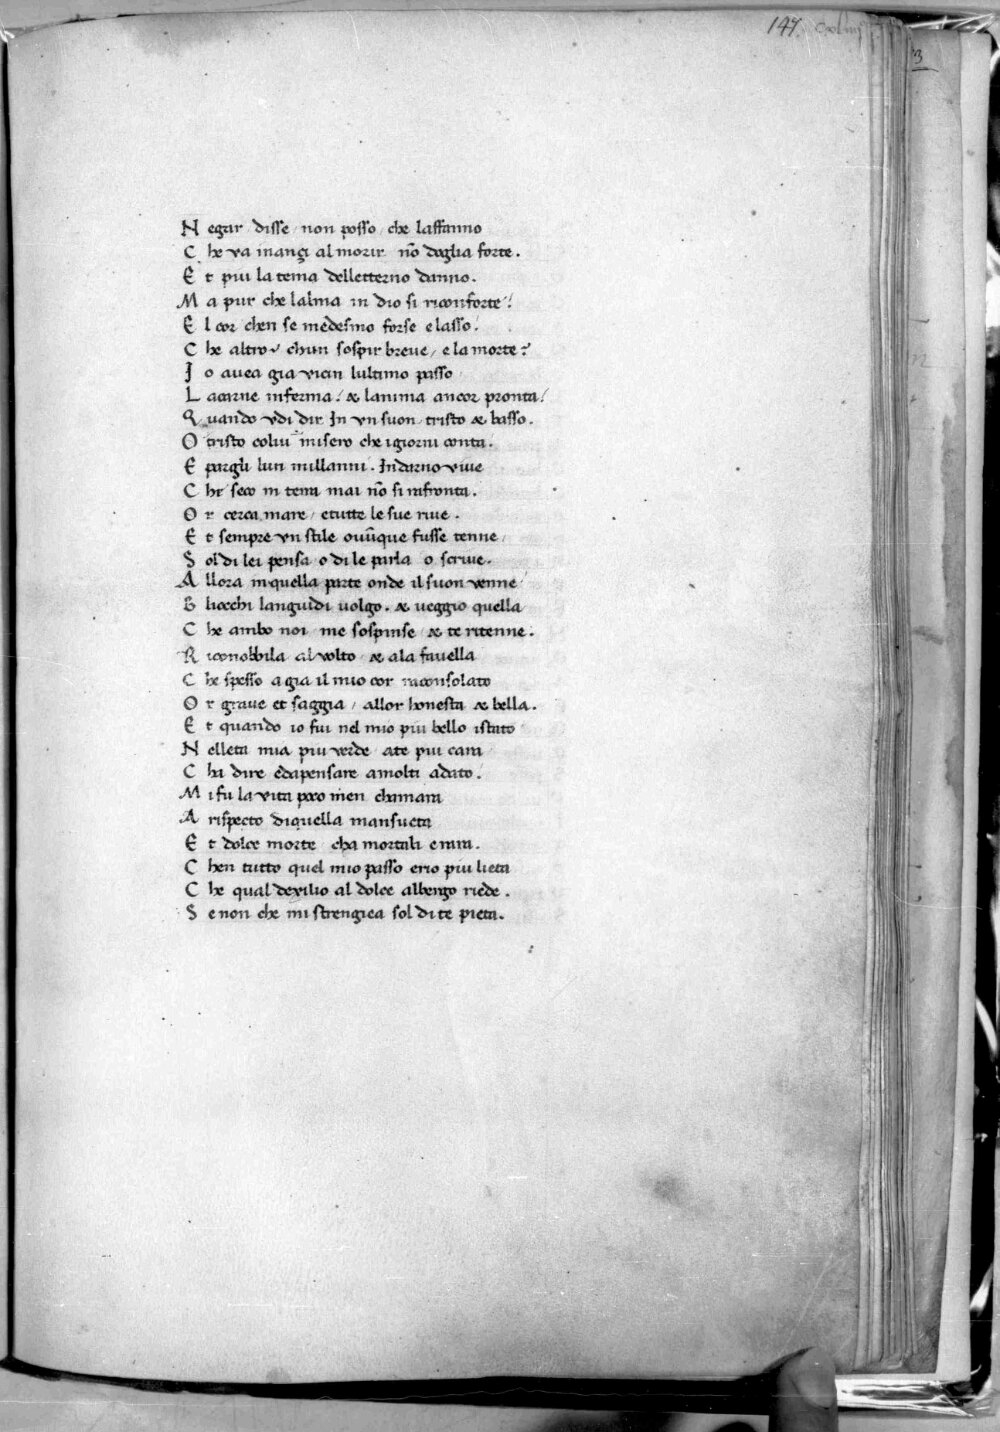 147.
3
N egar / disse / non posso / che laffanno
C he va inançi al morir nõ doglia forte.
E t piu la tema delletterno danno.
M a pur che lalma in dio si riconforte!
E l cor chen se medesmo forse e lasso!
C he altro v chun sospir breue / e la morte?
J o auea gia vicin lultimo passo
L a carne inferma! & lanima ancor pronta!
Q uando vdi dir In vn suon tristo & basso.
O tristo colui misero che i giorni conta.
E pargli lun millanni. Indarno viue
C he seco in terra mai nõ si rafronta.
O r cerca mare / e tutte le sue riue.
E t sempre vn stile ouũque fusse tenne /
S ol di lei pensa o di le parla o scriue.
A llora in quella parte onde il suon venne
G liocchi languidi uolgo. & ueggio quella
C he ambo noi / me sospinse / & te ritenne.
R iconobbila al volto & ala fauella
C he spesso a gia il mio cor raconsolato
O r graue et saggia / allor honesta & bella.
E t quando io fui nel mio piu bello istato
N elleta mia piu verde a te piu cara
C ha dire e da pensare a molti a dato!
M i fu la vita poco men chamara
A rispecto di quella mansueta
E t dolce morte cha mortali e rara.
C hen tutto quel mio passo ero piu lieta
C he qual dexilio al dolce albergo riede.
S e non che mi strengiea sol di te pieta.